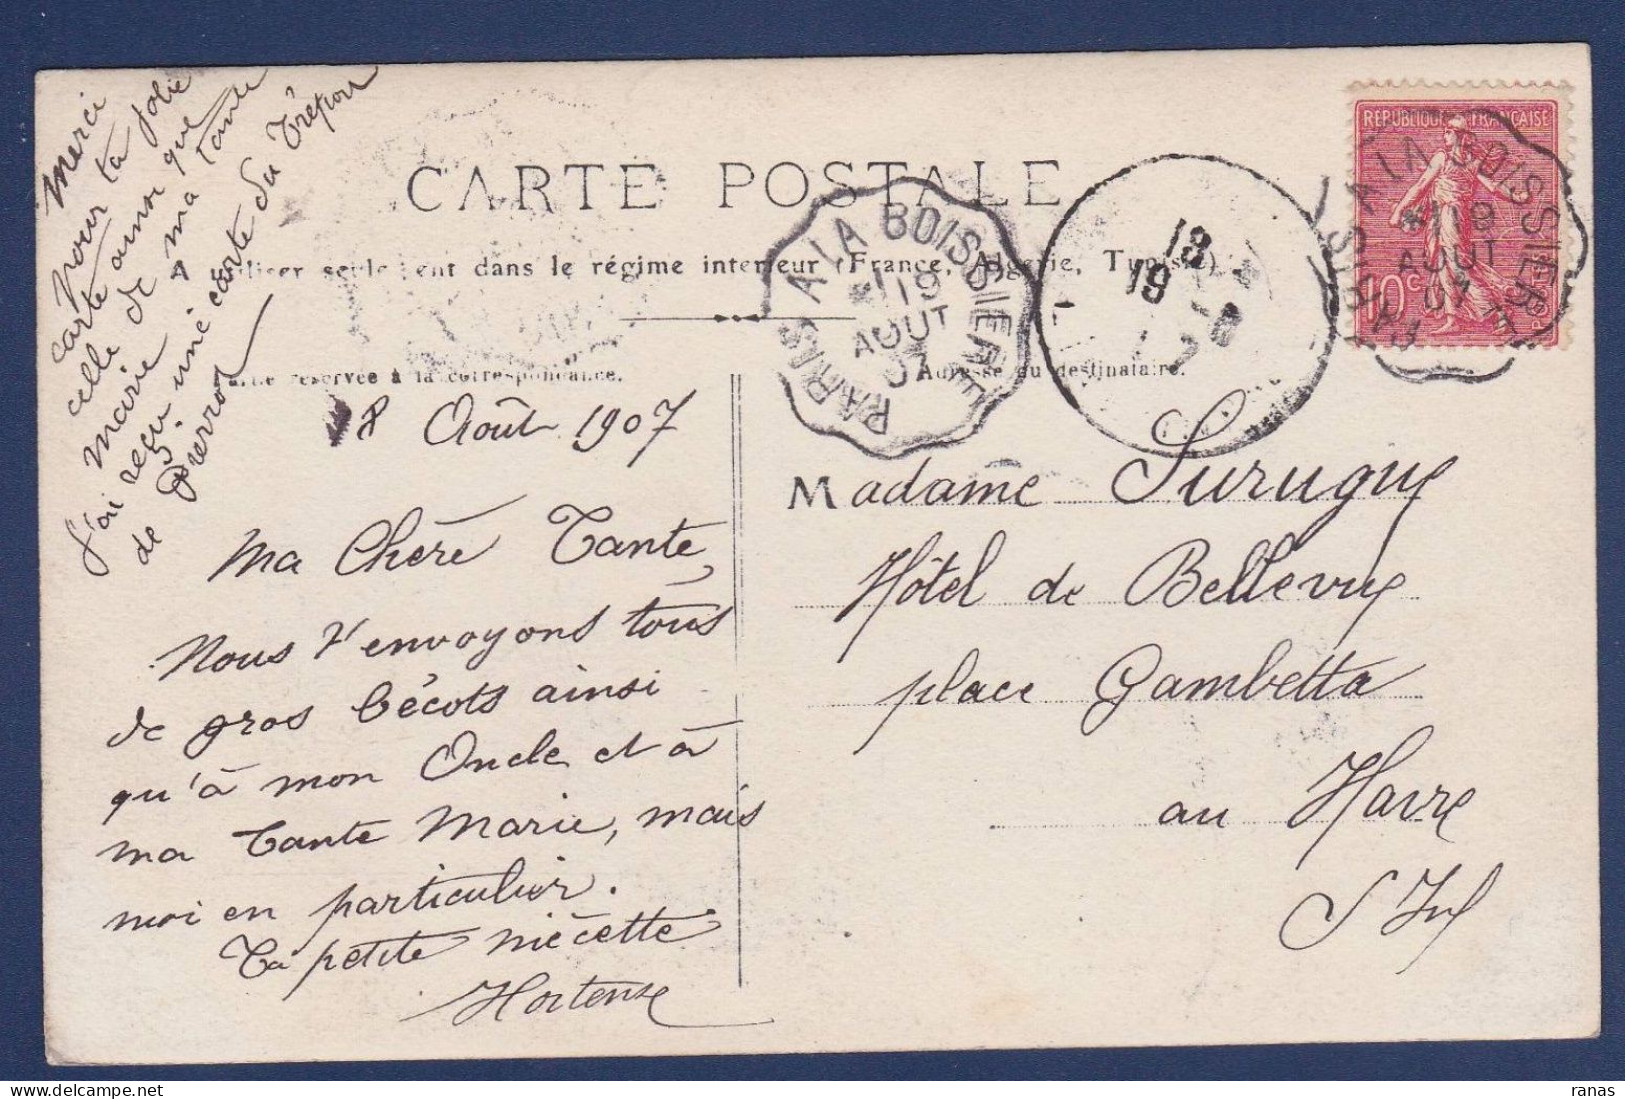 CARTE POSTALE
A utiliser seulement dans le régime intérieur (France, Algérie, Tunisie)
Partie réservée à la correspondance.
Adresse du destinataire.
REPUBLIQUE FRANÇAISE
10c
POSTES
PARIS A LA BOISSIERE
*119
AOUT
07
PARIS A LA BOISSIERE
*119
AOUT
07
18
19
8
Merci
pour ta jolie
carte ainsi que
celle de ma tante
Marie
J'ai reçu une carte du Tréport
de Pierrot
18 Août 1907
Ma Chère Tante,
Nous t'envoyons tous
de gros bécots ainsi
qu'à mon Oncle et à
ma Tante Marie, mais
moi en particulier.
Ta petite niècette
Hortense
Madame Surugue
Hôtel de Bellevue
place Gambetta
au Havre
S Inf
ranas